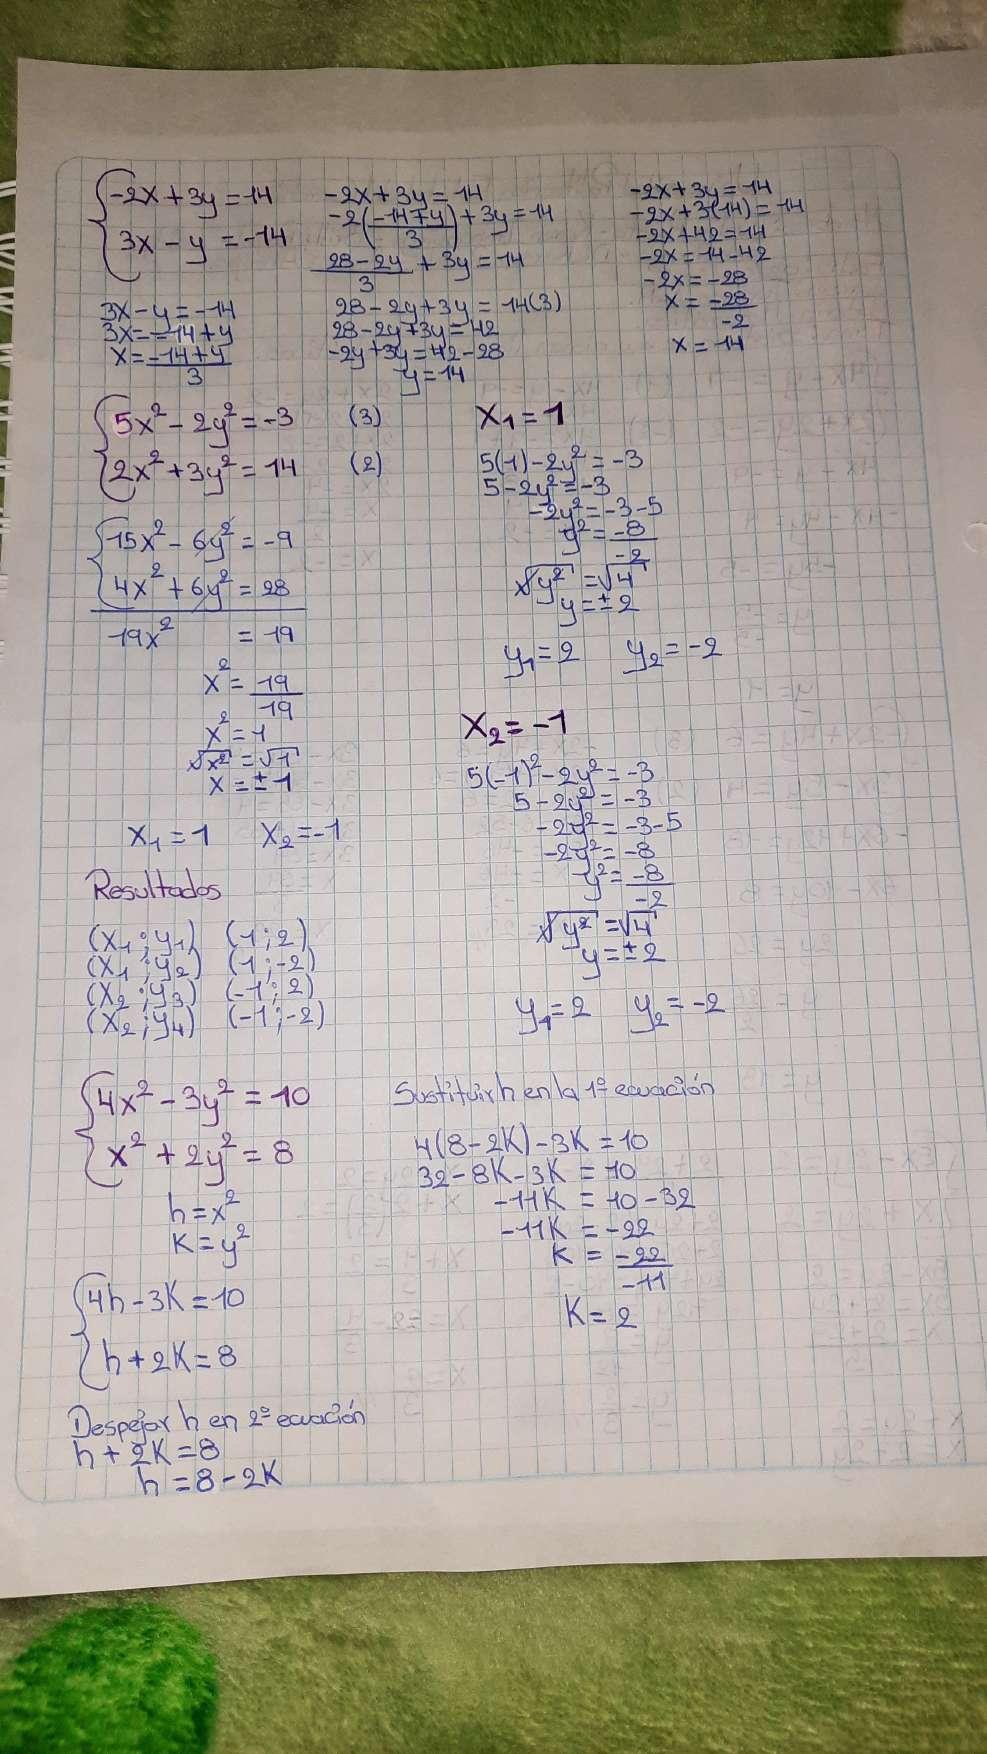 -2x + 3y = 14
3x - y = -14
3x - y = -14
3x = -14 + y
x = -14 + y / 3
-2x + 3y = 14
-2(-14 + y / 3) + 3y = 14
28 - 2y / 3 + 3y = 14
28 - 2y + 3y = 14(3)
28 - 2y + 3y = 42
-2y + 3y = 42 - 28
y = 14
-2x + 3y = 14
-2x + 3(14) = 14
-2x + 42 = 14
-2x = 14 - 42
-2x = -28
x = -28 / -2
x = 14
5x² - 2y² = -3 (3)
2x² + 3y² = 14 (2)
15x² - 6y² = -9
4x² + 6y² = 28
19x² = 19
x² = 19 / 19
x² = 1
√x² = √1
x = ± 1
x₁ = 1 x₂ = -1
x₁ = 1
5(1) - 2y² = -3
5 - 2y² = -3
-2y² = -3 - 5
y² = -8 / -2
√y² = √4
y = ± 2
y₁ = 2 y₂ = -2
x₂ = -1
5(-1)² - 2y² = -3
5 - 2y² = -3
-2y² = -3 - 5
-2y² = -8
y² = -8 / -2
√y² = √4
y = ± 2
y₁ = 2 y₂ = -2
Resultados
(x₁ ; y₁) (1 ; 2)
(x₁ ; y₂) (1 ; -2)
(x₂ ; y₃) (-1 ; 2)
(x₂ ; y₄) (-1 ; -2)
4x² - 3y² = 10
x² + 2y² = 8
h = x²
K = y²
4h - 3K = 10
h + 2K = 8
Despejar h en 2º ecuación
h + 2K = 8
h = 8 - 2K
Sustituir h en la 1º ecuación
4(8 - 2K) - 3K = 10
32 - 8K - 3K = 10
-11K = 10 - 32
-11K = -22
K = -22 / -11
K = 2